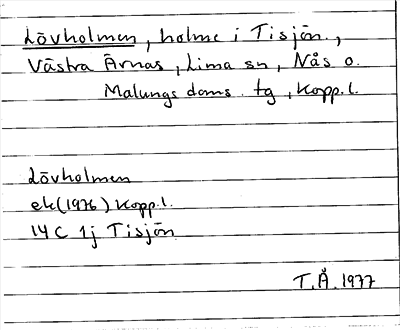 Lövholmen, holme i Tisjön,
Västra Ärnäs, Lima sn, Nås o.
Malungs doms. tg, Kopp.l.
Lövholmen
ek(1976) Kopp.l.
14C 1j Tisjön
T.Å. 1977